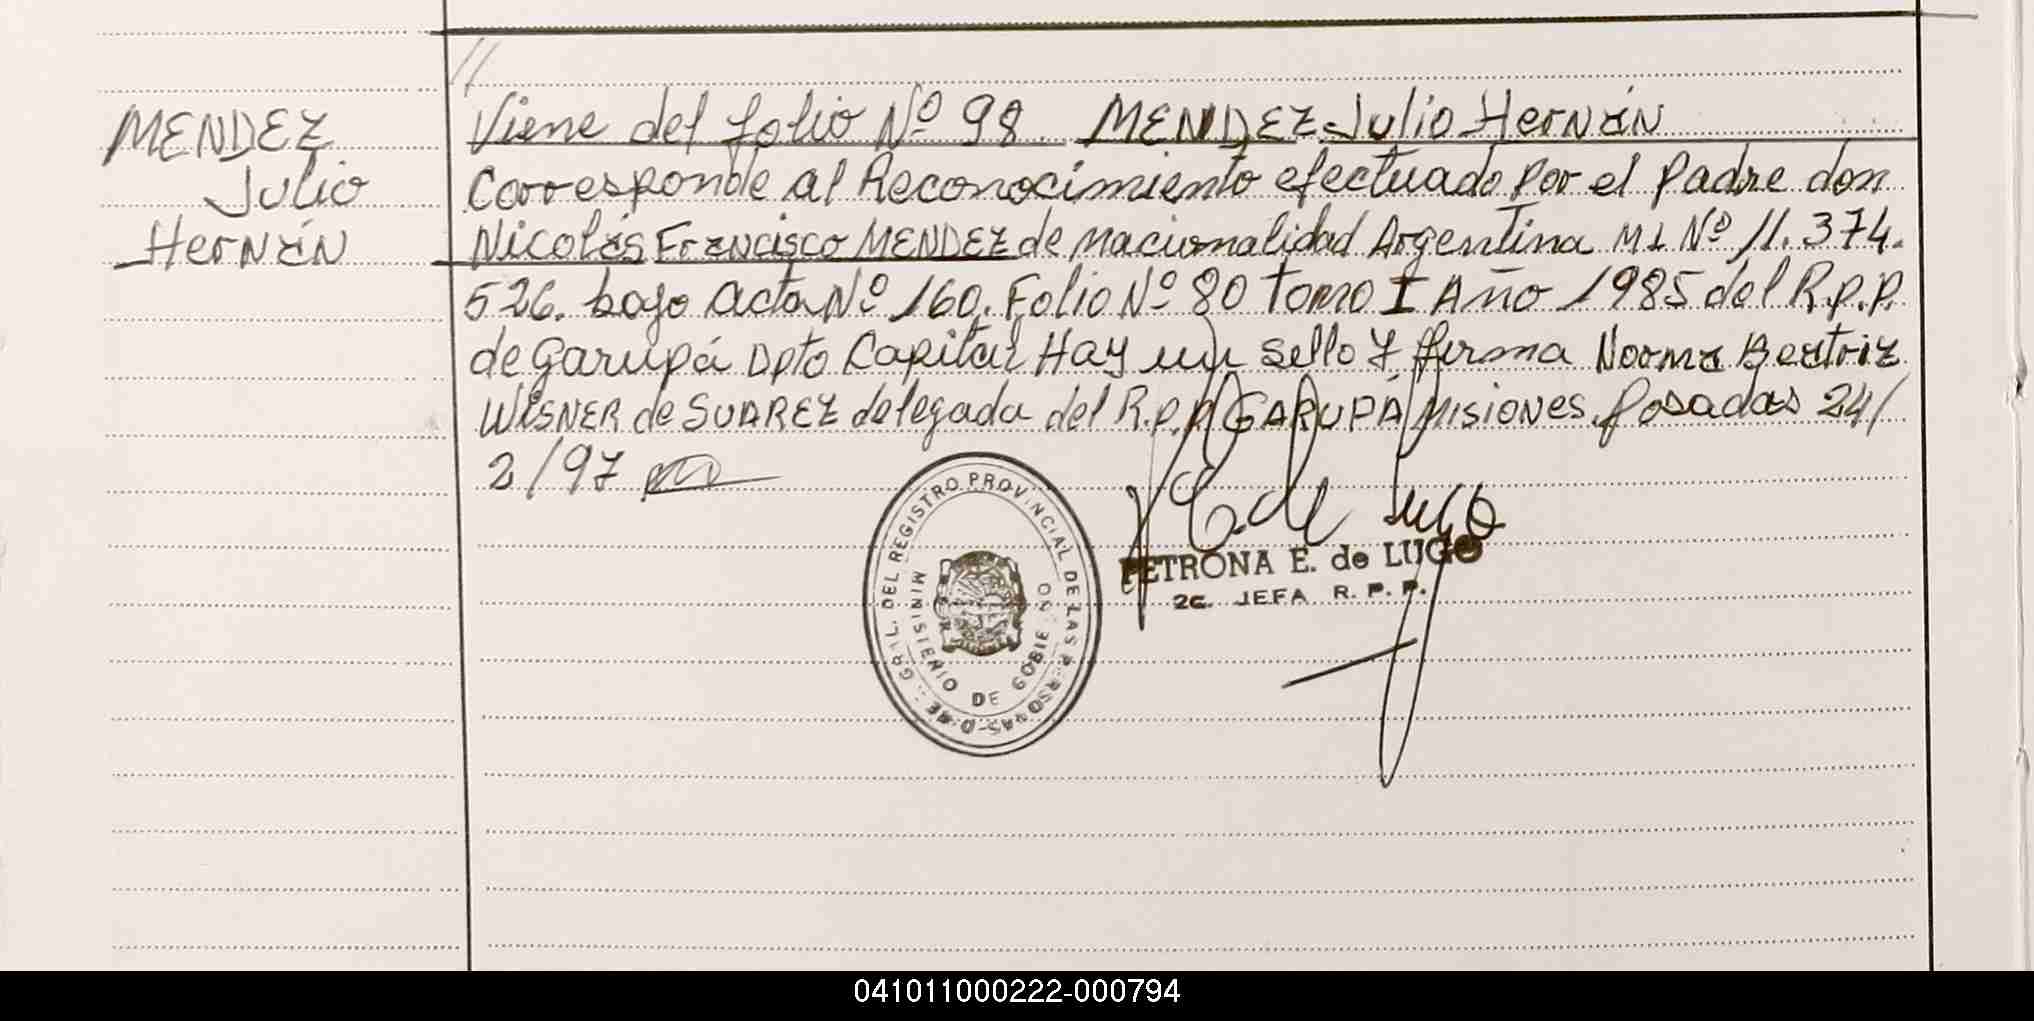 MENDEZ
Julio
Hernán
//
Viene del folio Nº 98. MENDEZ Julio Hernán
Corresponde al Reconocimiento efectuado por el padre don
Nicolás Francisco MENDEZ de nacionalidad Argentina MI Nº 11.374.
526. bajo acta Nº 160. Folio Nº 80 tomo I Año 1985 del R.p.p.
de Garupá Dpto Capital Hay un sello y firma Norma Beatriz
WISNER de SUAREZ delegada del R.p.p GARUPÁ Misiones. Posadas 24/
2/97
GRAL. DEL REGISTRO PROVINCIAL DE LAS PERSONAS
MINISTERIO DE GOBIERNO
E. de Lugo
PETRONA E. de LUGO
2a. JEFA R. P. P.
041011000222-000794